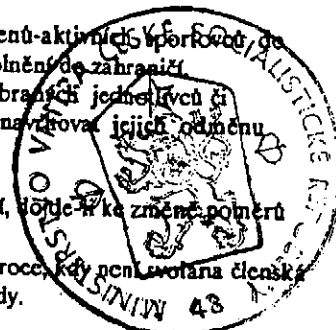 enů-aktivních sportovců do
olnění do zahraničí.
braných jednotlivců či
navrhovat jejich odměnu
í, dojde-li ke změně poměrů
roce, kdy není svolána členská
dy.
MINISTERSTVO VNITRA ČESKÉ SOCIALISTICKÉ REPUBLIKY
48